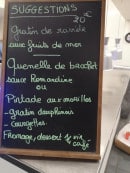 SUGGESTIONS
20€
Gratin de
aux fruits de mer
Quenelle de brochet
sauce Normandine
ou
Pintade aux morilles
- gratin dauphinois
- Courgettes.
Fromage, dessert, vin
café